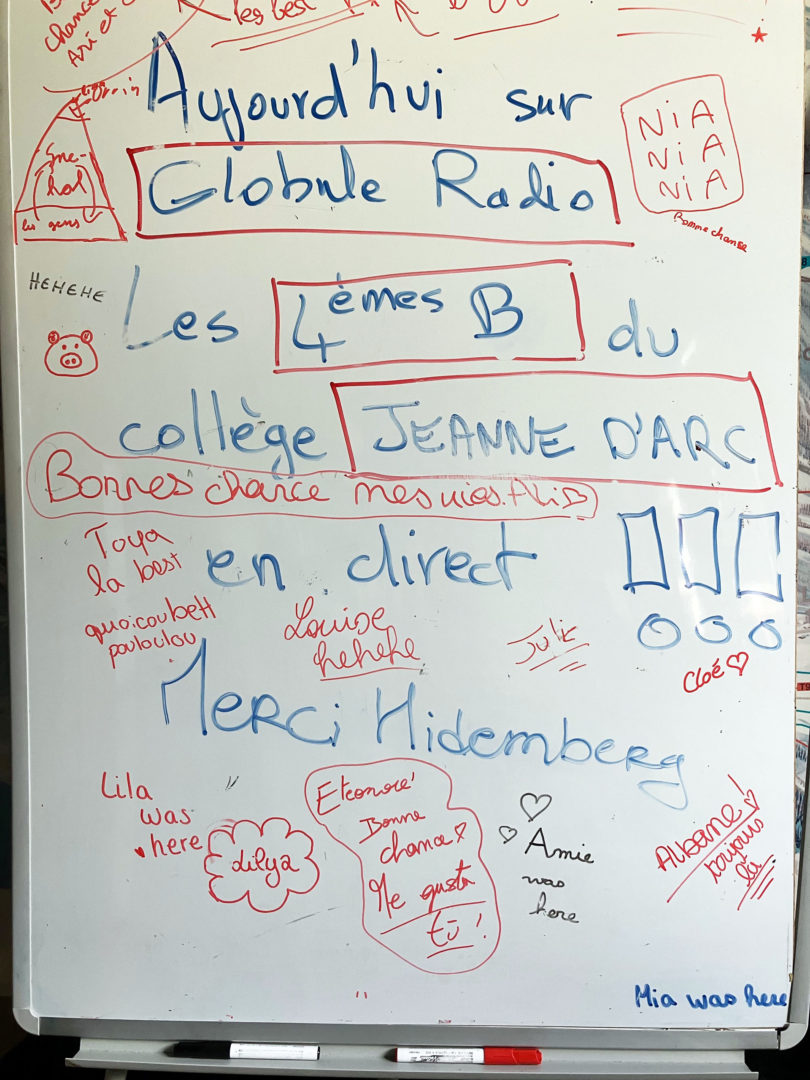 chance
Ari et
les best
Aujourd'hui sur
Globule Radio
NiA
NiA
NiA
Bonne chance
les gens
HEHEHE
Les 4èmes B du
collège JEANNE D'ARC
Bonnes chance mes
Toya
la best
en direct
quoicoubett
pouloulou
Louise
hehehe
Julie
Cloé
Merci Hidemberg
Lila
was
here
Lilya
Bonne
chance
Me gusta
tū !
Amie
was
here
Albane !
toujours
là
Mia was here